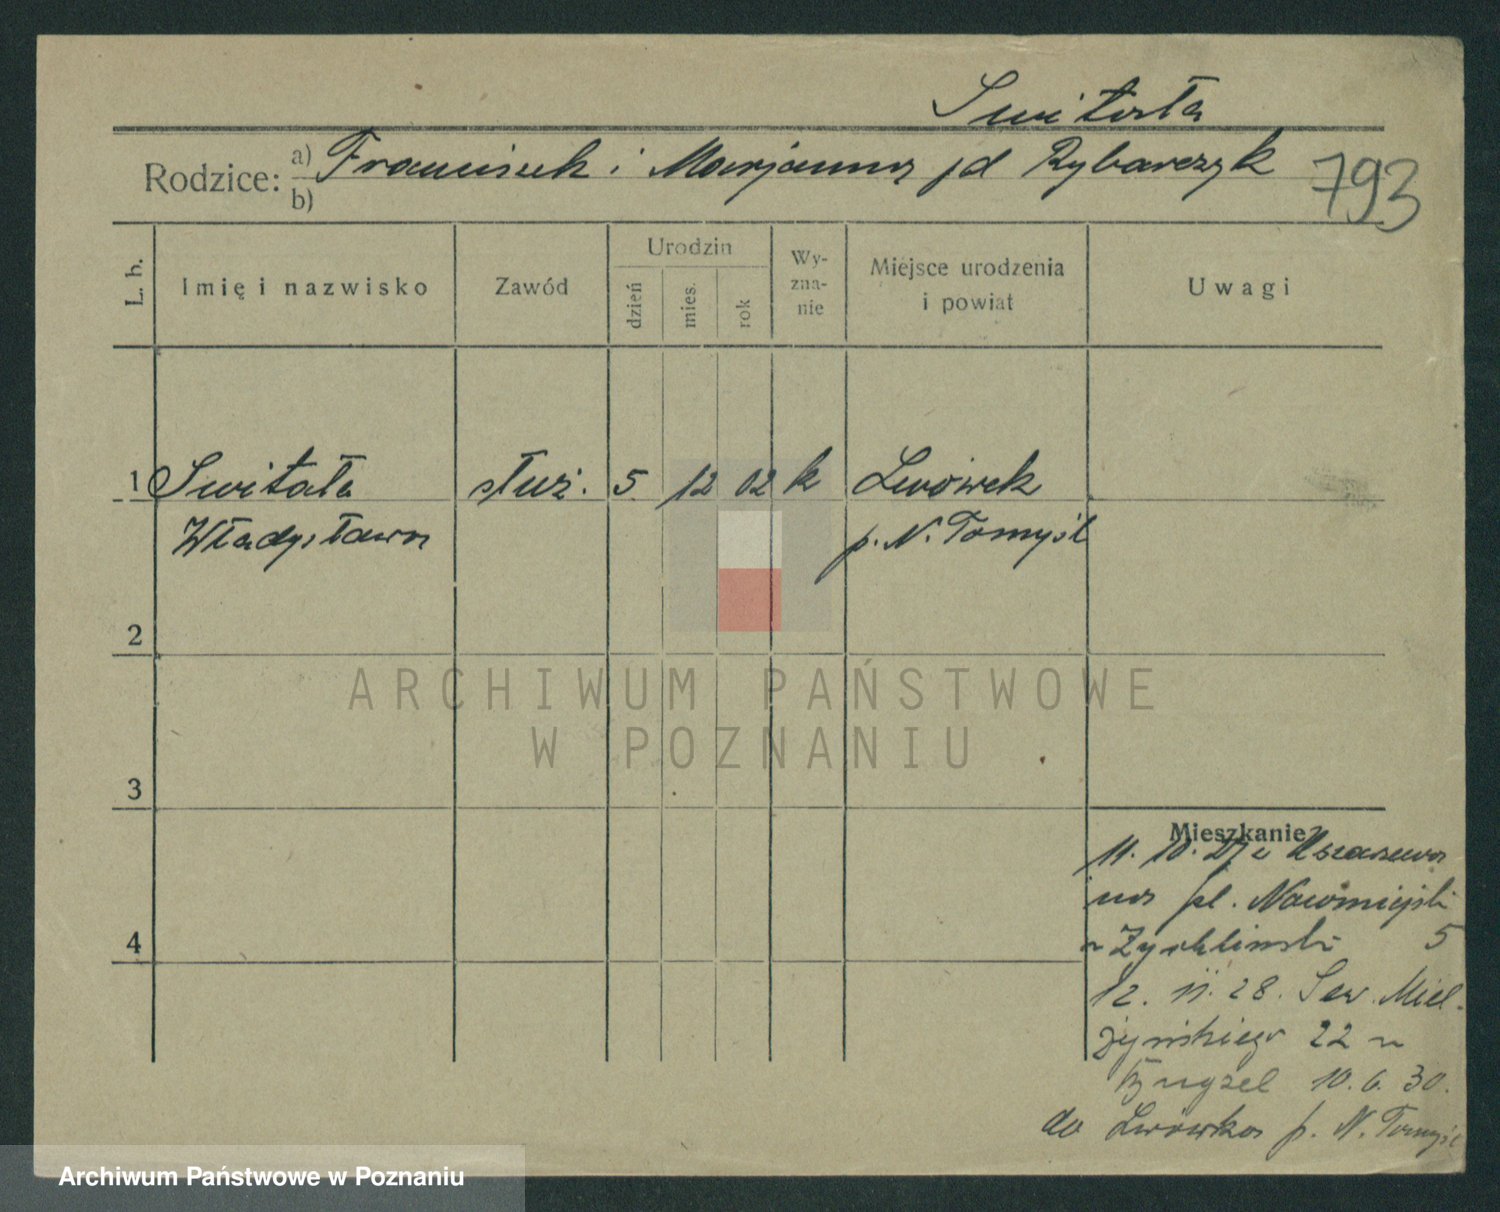 Switała
Rodzice: a) Franciszek i Marjanna jd Rybarczyk
b)
793
L. b.
Imię i nazwisko
Zawód
Urodzin
dzień
mies.
rok
Wy-
zna-
nie
Miejsce urodzenia
i powiat
Uwagi
1 Switała służ. 5 12 02 k Lwówek
Władysława p. N. Tomyśl
2
3
4
Mieszkanie
11. 10. 27 z
na pl. Nowomiejski
u Zychlinski 5
12. 11. 28. Sew. Miel-
żyńskiego 22 u
10. 6. 30.
do Lwówka p. N. Tomyśl
ARCHIWUM PAŃSTWOWE
W POZNANIU
Archiwum Państwowe w Poznaniu